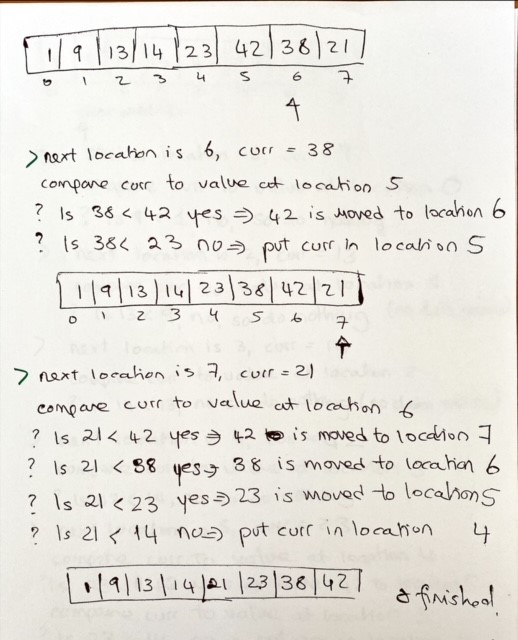 1 | 9 | 13 | 14 | 23 | 42 | 38 | 21
0 1 2 3 4 5 6 7
> next location is 6, curr = 38
compare curr to value at location 5
? Is 38 < 42 yes ⇒ 42 is moved to location 6
? Is 38 < 23 no ⇒ put curr in location 5
1 | 9 | 13 | 14 | 23 | 38 | 42 | 21
0 1 2 3 4 5 6 7
> next location is 7, curr = 21
compare curr to value at location 6
? Is 21 < 42 yes ⇒ 42 is moved to location 7
? Is 21 < 38 yes ⇒ 38 is moved to location 6
? Is 21 < 23 yes ⇒ 23 is moved to location 5
? Is 21 < 14 no ⇒ put curr in location 4
1 | 9 | 13 | 14 | 21 | 23 | 38 | 42
& finished!